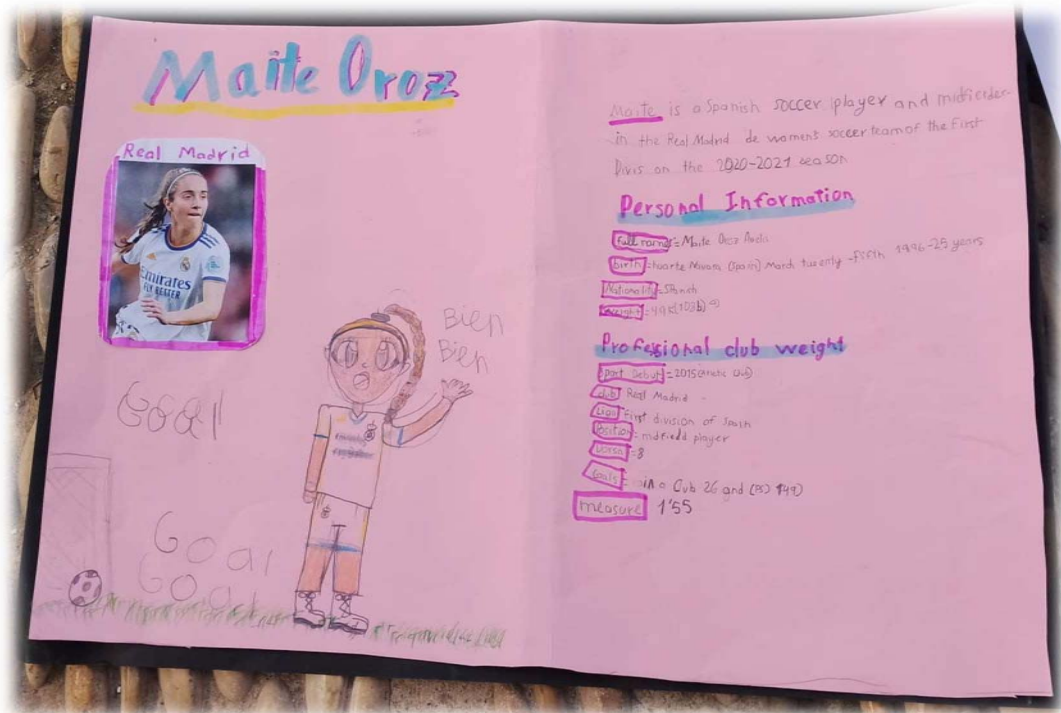 Maite Oroz
Real Madrid
Emirates
FLY BETTER
Bien
Bien
Goal
Goal
Goal
Maite is a Spanish soccer player and
in the Real Madrid de women's soccer team of the First
Divis on the 2020-2021 season
Personal Information
full name = Maite Oroz
birth = huarte Navarra (Spain) March twenty-fifth 1996-25 years
Nationality = Spanish
weight = 49 K
Professional club weight
port Debut = 2015
club Real Madrid
Liga First division of Spain
Position = midfield player
=8
Goals = in a Cub 26 and
measure 1'55